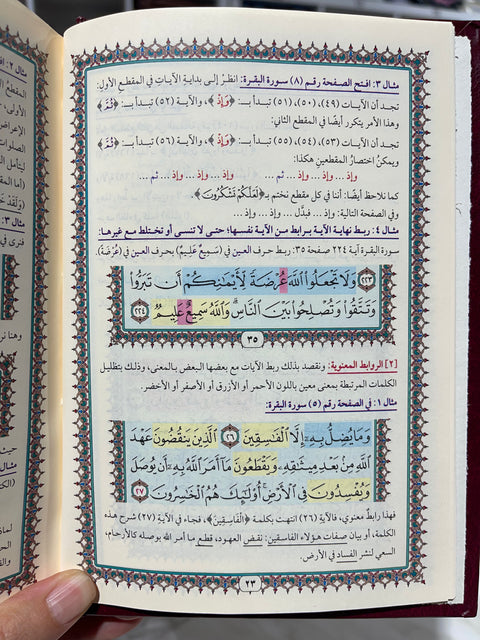 مثال ٣: افتح الصفحة رقم (٨) سورة البقرة: انظر إلى بداية الآيات في المقطع الأول:
تجد أن الآيات (٤٩)، (٥٠)، (٥١) تبدأ بـ: ﴿وَإِذْ﴾، والآية (٥٢) تبدأ بـ: ﴿ثُمَّ﴾
وهذا الأمر يتكرر أيضًا في المقطع الثاني:
تجد أن الآيات (٥٣)، (٥٤)، (٥٥) تبدأ بـ: ﴿وَإِذْ﴾، والآية (٥٦) تبدأ بـ: ﴿ثُمَّ﴾
ويمكنُ اختصارُ المقطعينِ هكذا:
وإذ ... وإذ ... وإذ ... ثم ... وإذ ... وإذ ... وإذ ... ثم
كما نلاحظ أيضًا: أننا في كل مقطع نختم بـ﴿لَعَلَّكُمْ تَشْكُرُونَ﴾.
وفي الصفحة التالية: وإذ ... وإذ ... فبدَّل ... وإذ ... وإذ
مثال ٤: ربط نهاية الآية برابط من الآية نفسها؛ حتى لا تنسى أو تختلط مع غيرها:
سورة البقرة آية ٢٢٤ صفحة ٣٥: ربط حرف العين في (سَمِيعٌ عَلِيمٌ) بحرف العين في (عُرْضَةً).
٢٢٣ وَلَا تَجْعَلُوا۟ ٱللَّهَ عُرْضَةً لِّأَيْمَـٰنِكُمْ أَن تَبَرُّوا۟
وَتَتَّقُوا۟ وَتُصْلِحُوا۟ بَيْنَ ٱلنَّاسِ ۗ وَٱللَّهُ سَمِيعٌ عَلِيمٌ ٢٢٤
٣٥
[٢] الروابط المعنوية: ونقصد بذلك ربط الآيات مع بعضها البعض بالمعنى، وذلك بتظليل
الكلمات المرتبطة بمعنى معين باللون الأحمر أو الأزرق أو الأصفر أو الأخضر.
مثال ١: في الصفحة رقم (٥) سورة البقرة:
وَمَا يُضِلُّ بِهِۦٓ إِلَّا ٱلْفَـٰسِقِينَ ٢٦ ٱلَّذِينَ يَنقُضُونَ عَهْدَ
ٱللَّهِ مِنۢ بَعْدِ مِيثَـٰقِهِۦ وَيَقْطَعُونَ مَآ أَمَرَ ٱللَّهُ بِهِۦٓ أَن يُوصَلَ
وَيُفْسِدُونَ فِى ٱلْأَرْضِ أُو۟لَـٰٓئِكَ هُمُ ٱلْخَـٰسِرُونَ ٢٧
فهذا رابطٌ معنوي، فالآية (٢٦) انتهت بكلمة ﴿الْفَاسِقِينَ﴾، فجاء في الآية (٢٧) شرح هذه
الكلمة، أو بيان صفات هؤلاء الفاسقين: نقض العهود، قطع ما أمر الله بوصله كالأرحام،
السعي لنشر الفساد في الأرض.
٢٣